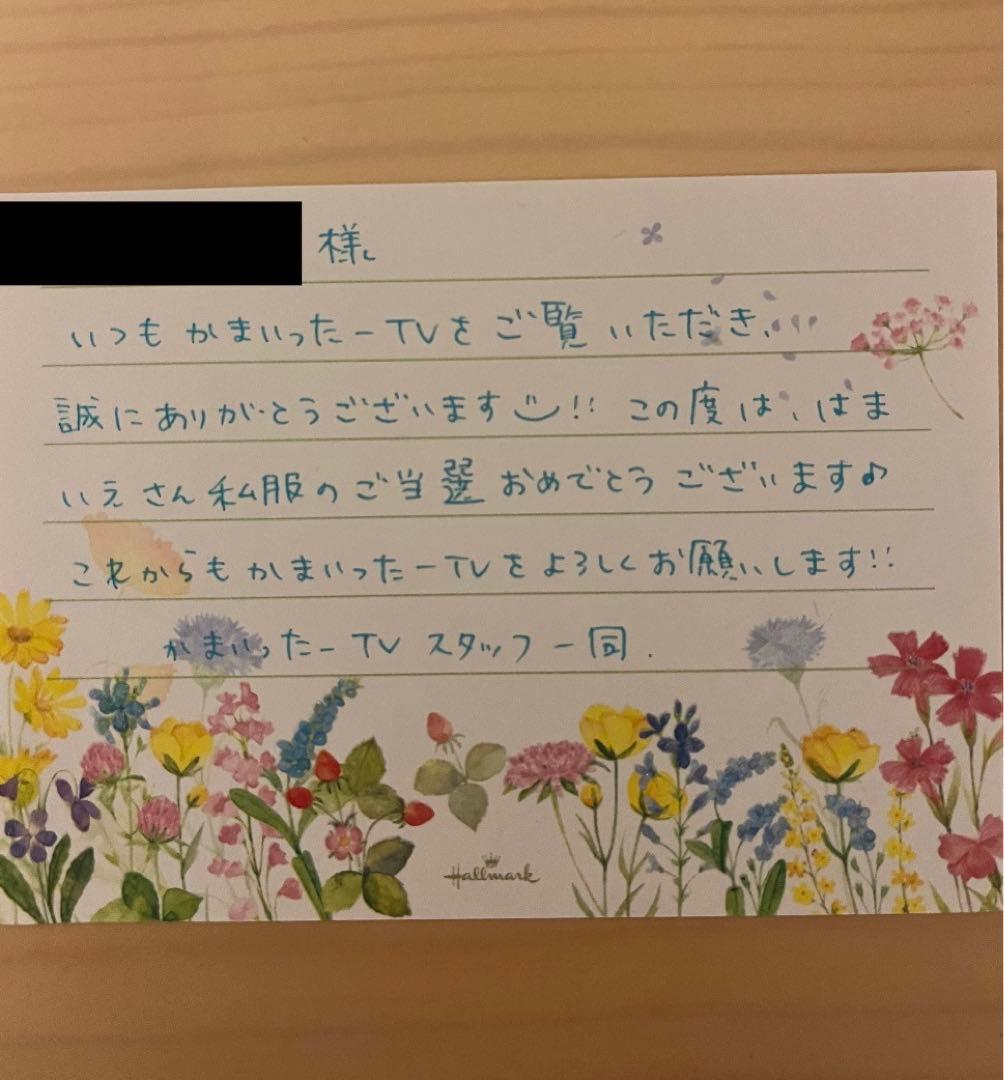 様
いつもかまいったーTVをご覧いただき、
誠にありがとうございます!! この度は、はま
いえさん私服のご当選おめでとうございます♪
これからもかまいったーTVをよろしくお願いします!!
かまいったーTVスタッフ一同.
Hallmark